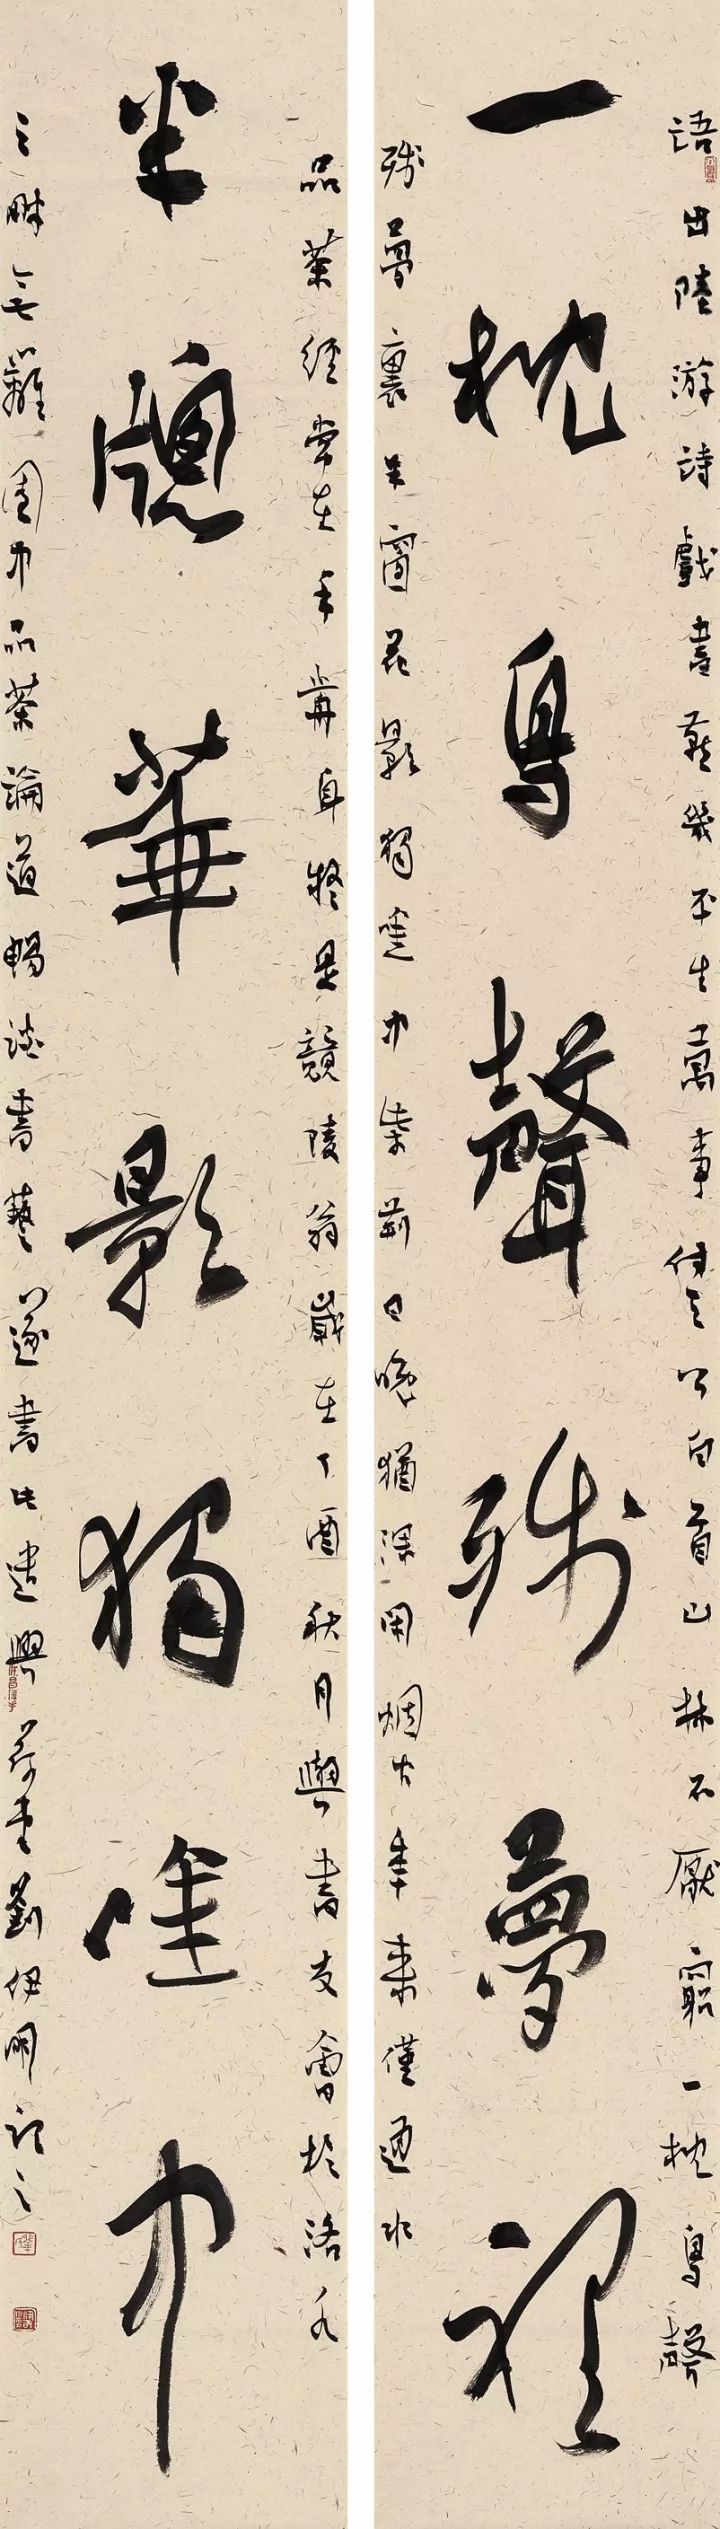 語出陸游詩戲書燕几平生萬事付天公白首山林不厭窮一枕鳥聲
一枕鳥聲殘夢裡
殘夢裏半窗花影獨唫中柴荊日晚猶深閉烟火年來僅通水
品茶經常在手前身疑是竟陵翁歲在丁酉秋月與書友會於洛水
半牕華影獨唫中
之畔離園中品茶論道暢談書藝遂書此遣興劉伊明記之